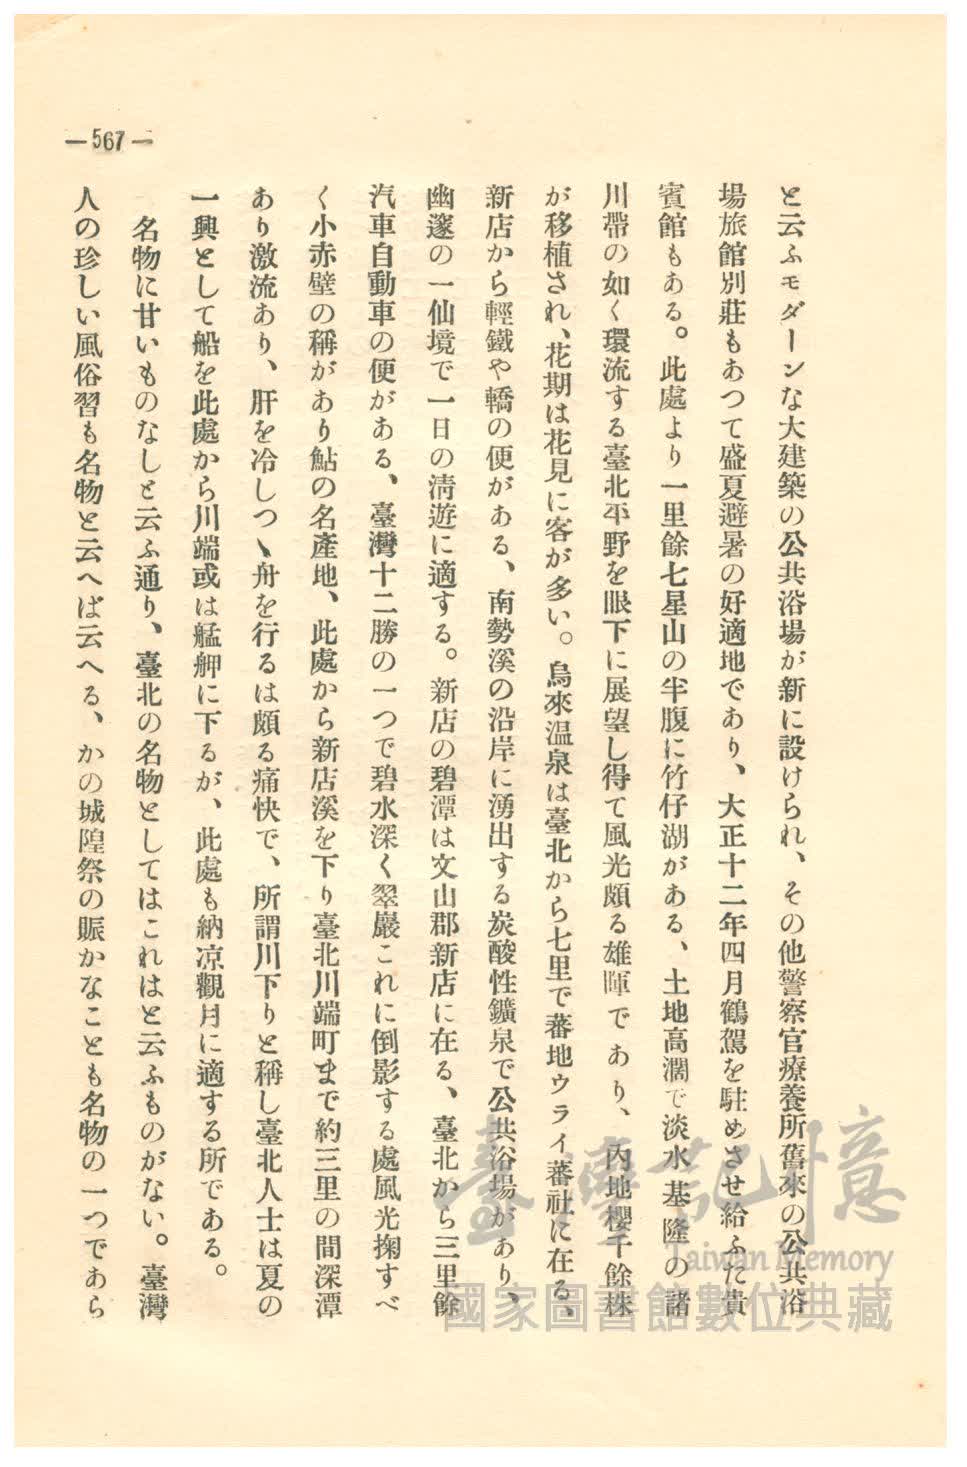 —567—
と云ふモダーンな大建築の公共浴場が新に設けられ、その他警察官療養所舊來の公共浴
場旅館別莊もあつて盛夏避暑の好適地であり、大正十二年四月鶴駕を駐めさせ給ふた貴
賓館もある。此處より一里餘七星山の半腹に竹仔湖がある、土地高濶で淡水基隆の諸
川帶の如く環流する臺北平野を眼下に展望し得て風光頗る雄暉であり、內地櫻千餘株
が移植され、花期は花見に客が多い。烏來溫泉は臺北から七里で蕃地ウライ蕃社に在る、
新店から輕鐵や轎の便がある、南勢溪の沿岸に湧出する炭酸性鑛泉で公共浴場があり、
幽邃の一仙境で一日の淸遊に適する。新店の碧潭は文山郡新店に在る、臺北から三里餘
汽車自動車の便がある、臺灣十二勝の一つで碧水深く翠巖これに倒影する處風光掬すべ
く小赤壁の稱があり鮎の名產地、此處から新店溪を下り臺北川端町まで約三里の間深潭
あり激流あり、肝を冷しつゝ舟を行るは頗る痛快で、所謂川下りと稱し臺北人士は夏の
一興として船を此處から川端或は艋舺に下るが、此處も納凉觀月に適する所である。
名物に甘いものなしと云ふ通り、臺北の名物としてはこれはと云ふものがない。臺灣
人の珍しい風俗習も名物と云へば云へる、かの城隍祭の賑かなことも名物の一つであら
臺灣記憶
Taiwan Memory
國家圖書館數位典藏